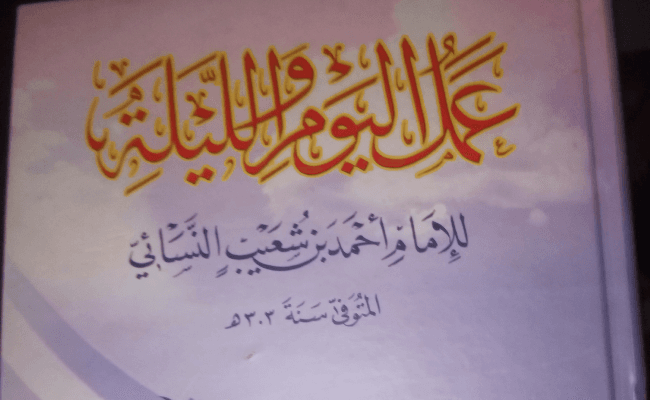 عَمَلُ الْيَوْمِ وَاللَّيْلَةِ
لِلإِمَامِ أَحْمَدَ بْنِ شُعَيْبٍ النَّسَائِيِّ
المُتَوَفَّى سَنَةَ ٣٠٣ هـ